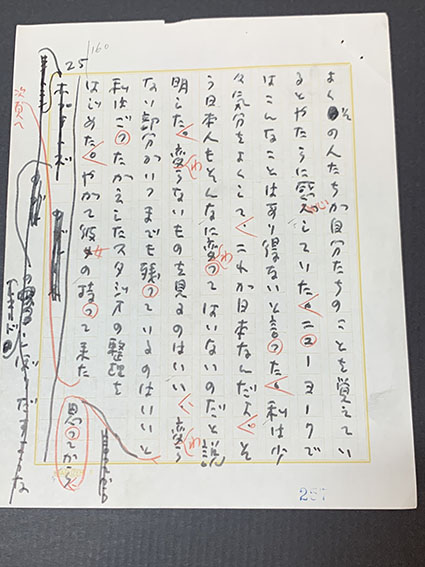 160
25
よくその人たちが自分たちのことを覚えてい
るとやたらに感心していた。ニューヨークで
はこんなことはあり得ないと言った。私は少
々気分をよくして、これが日本なんだよ、そ
う日本人もそんなに変わってはいないのだと説
明した。変わらないものを見るのはいい、変わら
ない部分がいつまでも残っているのはいいと
思ってから
私はごったがえしたスタジオの整理を
はじめた。やがて彼女の持って来た
次頁へ
257